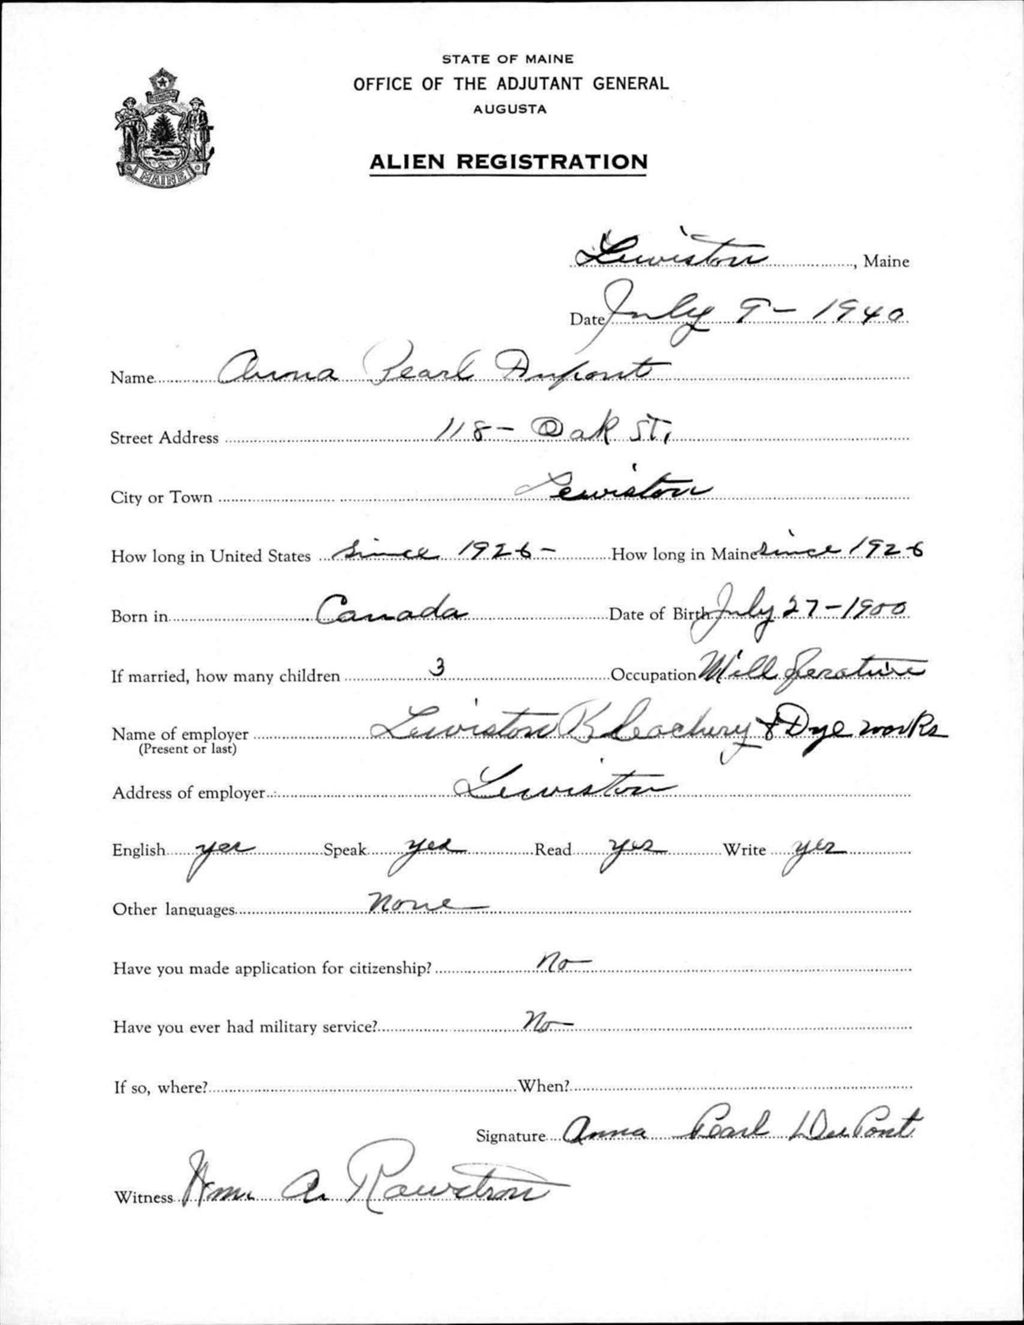 STATE OF MAINE
OFFICE OF THE ADJUTANT GENERAL
AUGUSTA
MAINE
ALIEN REGISTRATION
Lewiston, Maine
Date July 9 - 1940
Name Anna Pearl Dupont
Street Address 118 - Oak St.
City or Town Lewiston
How long in United States Since 1926 - How long in Maine Since 1926
Born in Canada Date of Birth July 27 - 1900
If married, how many children 3 Occupation Mill Operative
Name of employer Lewiston Bleachery & Dye works
(Present or last)
Address of employer Lewiston
English yes Speak yes Read yes Write yes
Other languages None
Have you made application for citizenship? No
Have you ever had military service? No
If so, where? When?
Signature Anna Pearl DuPont
Witness Wm. A. Rawstron